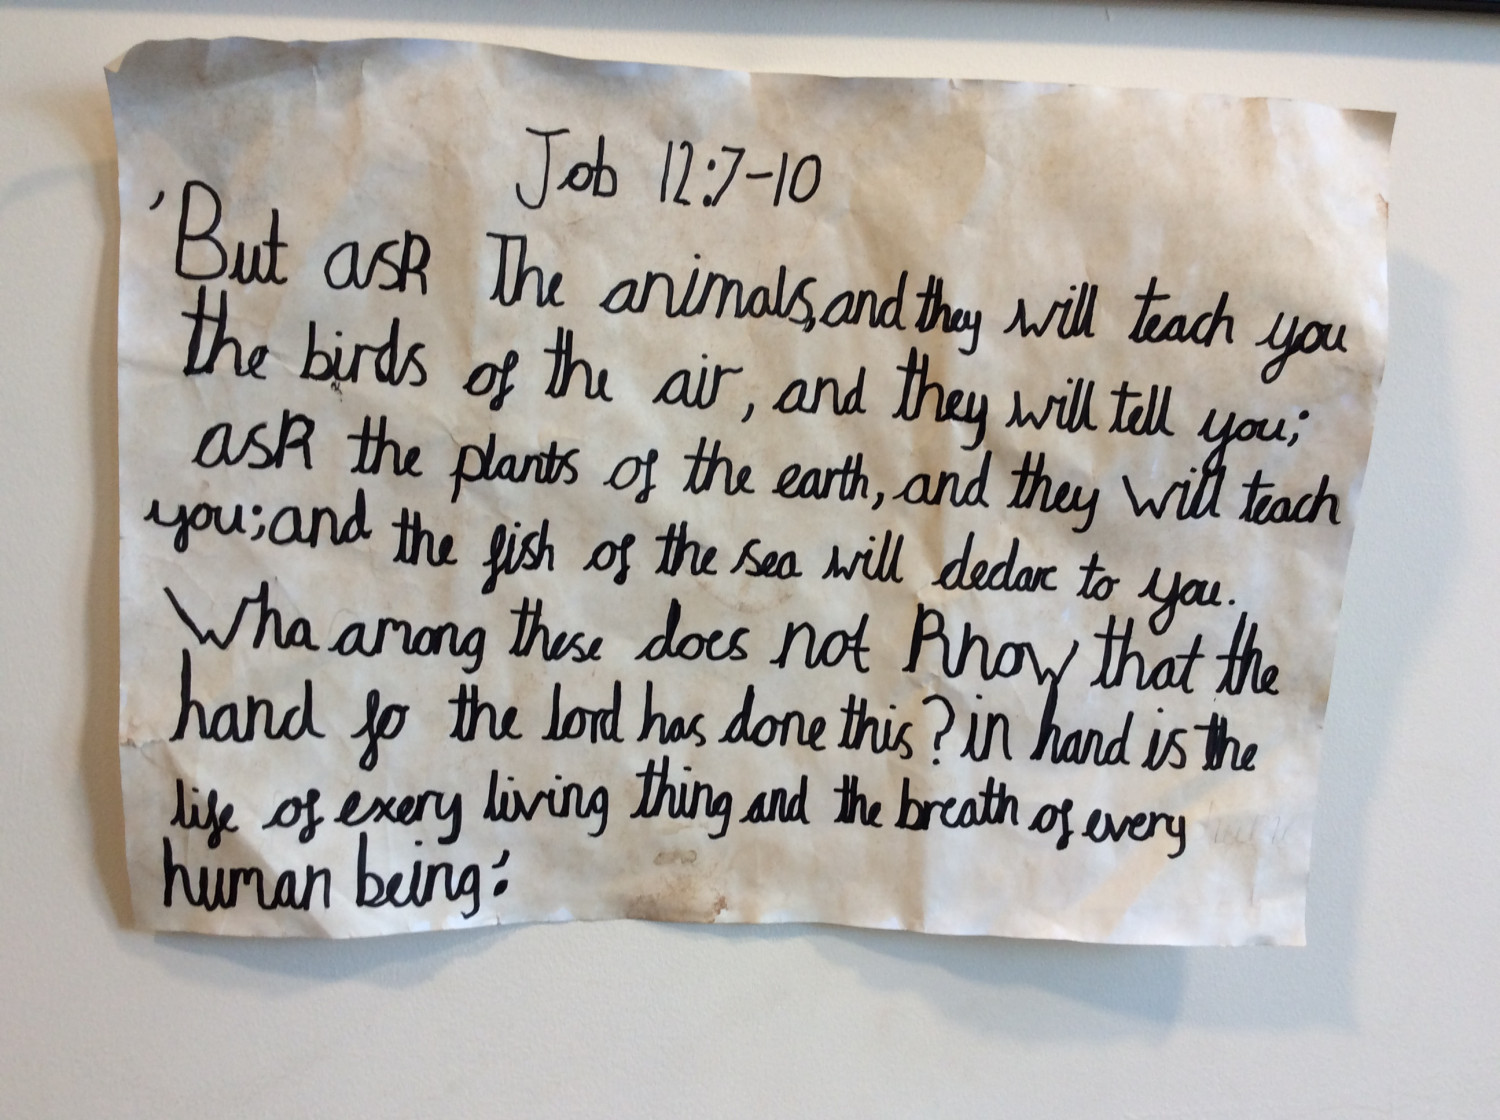 Job 12:7-10
'But ask The animals, and they will teach you
the birds of the air, and they will tell you;
ask the plants of the earth, and they will teach
you; and the fish of the sea will declare to you.
Wha among these does not Know that the
hand fo the lord has done this? in hand is the
life of exery living thing and the breath of every
human being.'